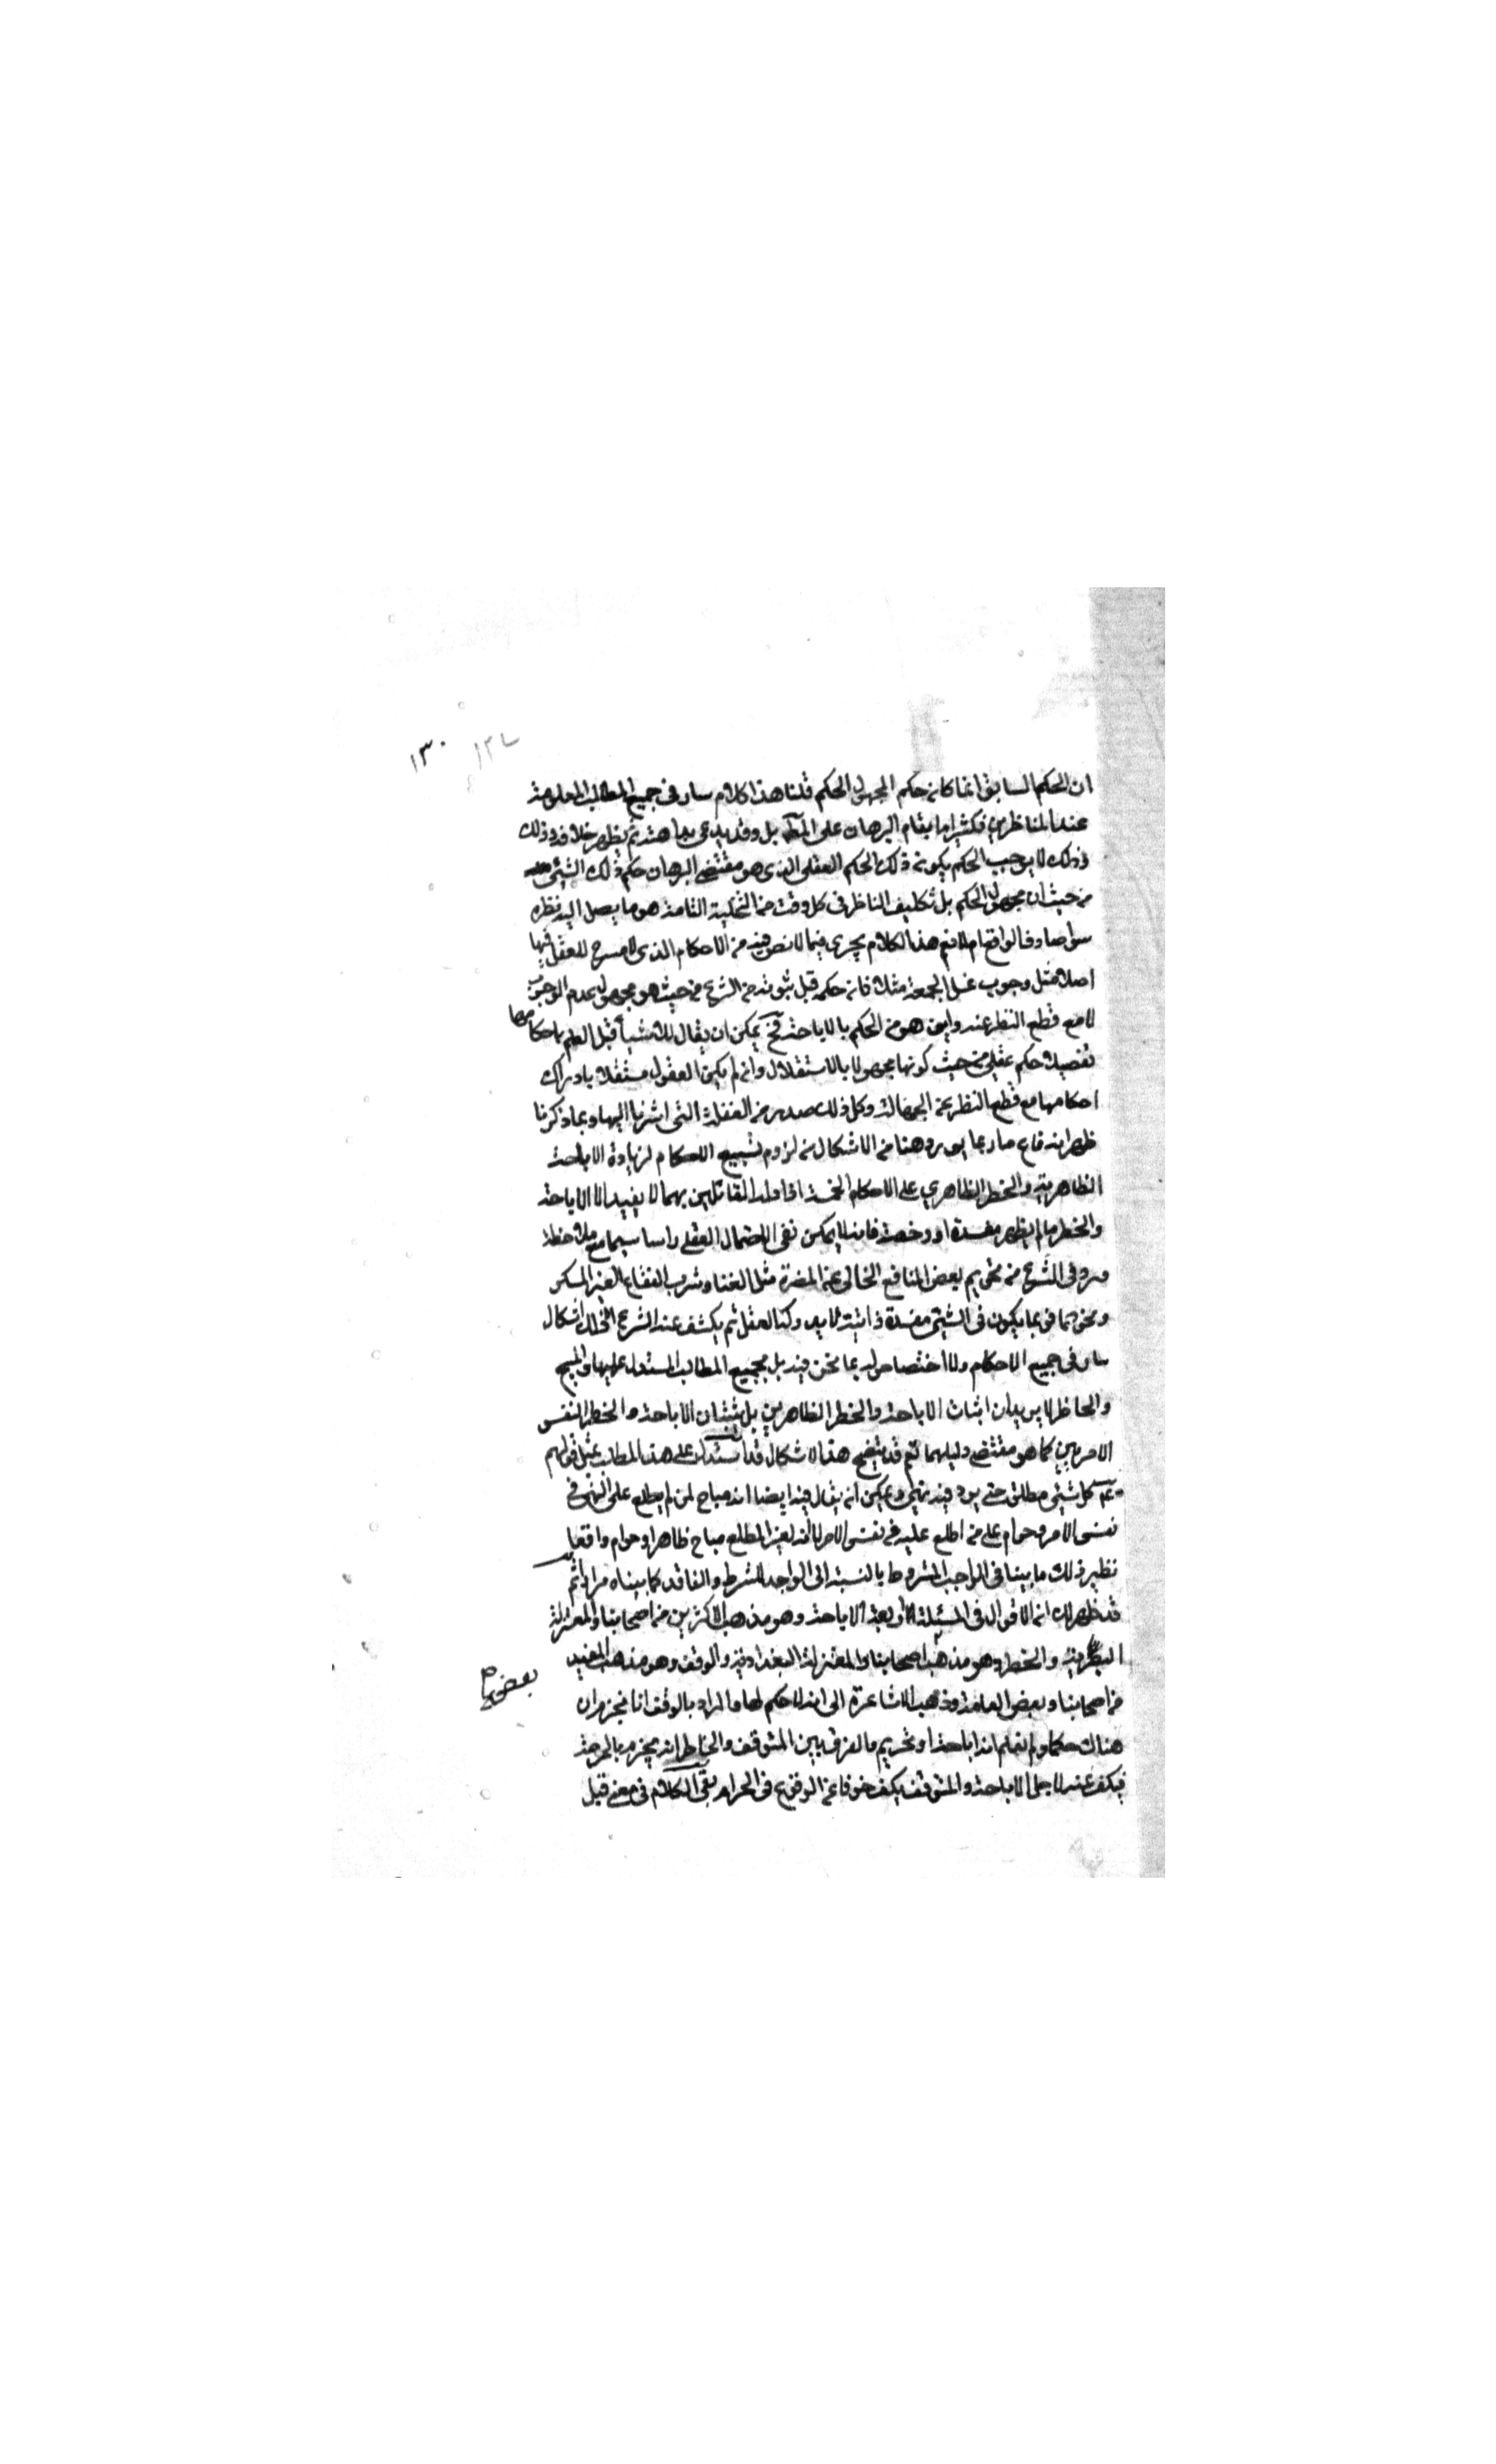 ١٣٠
ان الحكم السابق انما كان حكم المجهول الحكم قلنا هذا كلام سار فى جميع المطالب المعلومة
عند الناظرين فكثيرا ما يقام البرهان على المط بل وقد يدعى بداهته ثم يظهر خلافه وذلك
ذلك لا يوجب الحكم بكون ذلك الحكم العقلى الذى هو مقتضى البرهان حكم ذلك الشئ
من حيث انه مجهول الحكم بل تكليف الناظر فى كل وقت من التخلية التامة هو ما يصل اليه نظره
سواء صادف الواقع ام لا نعم هذا الكلام يجرى فيما لا نص فيه من الاحكام الذى لا مسرح للعقل فيها
اصلا مثل وجوب غسل الجمعة مثلا فان حكمه قبل ثبوته من الشرع من حيث هو مجهول عدم الوجوب
لا مع قطع النظر عنه واين هو من الحكم بالاباحة فح يمكن ان يقال للاشياء قبل العلم باحكامها
تفصيلا حكم عقلى من حيث كونها مجهولا بالاستقلال وان لم يكن العقول مستقلا بادراك
احكامها مع قطع النظر عن الجهالة وكل ذلك صدر من الغفلة التى اشرنا اليها وبما ذكرنا
ظهر اندفاع ما ربما يورد هنا من الاشكال من لزوم تسبيع الاحكام لزيادة الاباحة
الظاهرية والحظر الظاهرى على الاحكام الخمسة اذ ادلة القائلين بهما لا يفيد الا الاباحة
والحظر ما لم يظهر مفسدة او رخصة فانه لا يمكن نفى الاحتمال العقلى راسا سيما مع ملاحظة
ورد فى الشرع من تحريم بعض المنافع الخالى عن المضرة مثل الغناء وشرب الفقاع الغير المسكر
ونحوهما فربما يكون فى الشئ مفسدة ذاتية لا يدركها العقل ثم يكشف عنه الشرع اذ ذلك اشكال
سار فى جميع الاحكام ولا اختصاص له بما نحن فيه بل بجميع المطالب المستدل عليها والمبيح
والحاظر لا يريدان اثبات الاباحة والحظر الظاهرين بل يثبتان الاباحة والحظر النفس
الامريين كما هو مقتضى دليلهما نعم قد يتضح هذا الاشكال قد استدل على هذا المطلب بمثل قولهم
ع كل شئ مطلق حتى يرد فيه نهى ويمكن ان يقال فيه ايضا انه مباح لمن لم يطلع على النهى فى
نفس الامر وحرام على من اطلع عليه فى نفس الامر لا انه لغير المطلع مباح ظاهرا وحرام واقعا
نظير ذلك ما بينا فى الواجب المشروط بالنسبة الى الواجد للشرط والفاقد كما بيناه مرارا ثم
قد ظهر لك ان الاقوال فى المسئلة اربعة الاباحة وهو مذهب الاكثرين من اصحابنا والمعتزلة
البصرية والحظر وهو مذهب اصحابنا والمعتزلة البغدادية والوقف وهو مذهب المفيد
بعض
من اصحابنا وبعض العامة وذهب الاشاعرة الى انه لا حكم لها والمراد بالوقف انا نجزم ان
هناك حكما ولم نعلم انه اباحة او تحريم والفرق بين المتوقف والحاظر انه يجزم بالحرمة
فيكف عنه لاجل الاباحة والمتوقف يكف خوفا عن الوقوع فى الحرام بقى الكلام فى معنى قبل